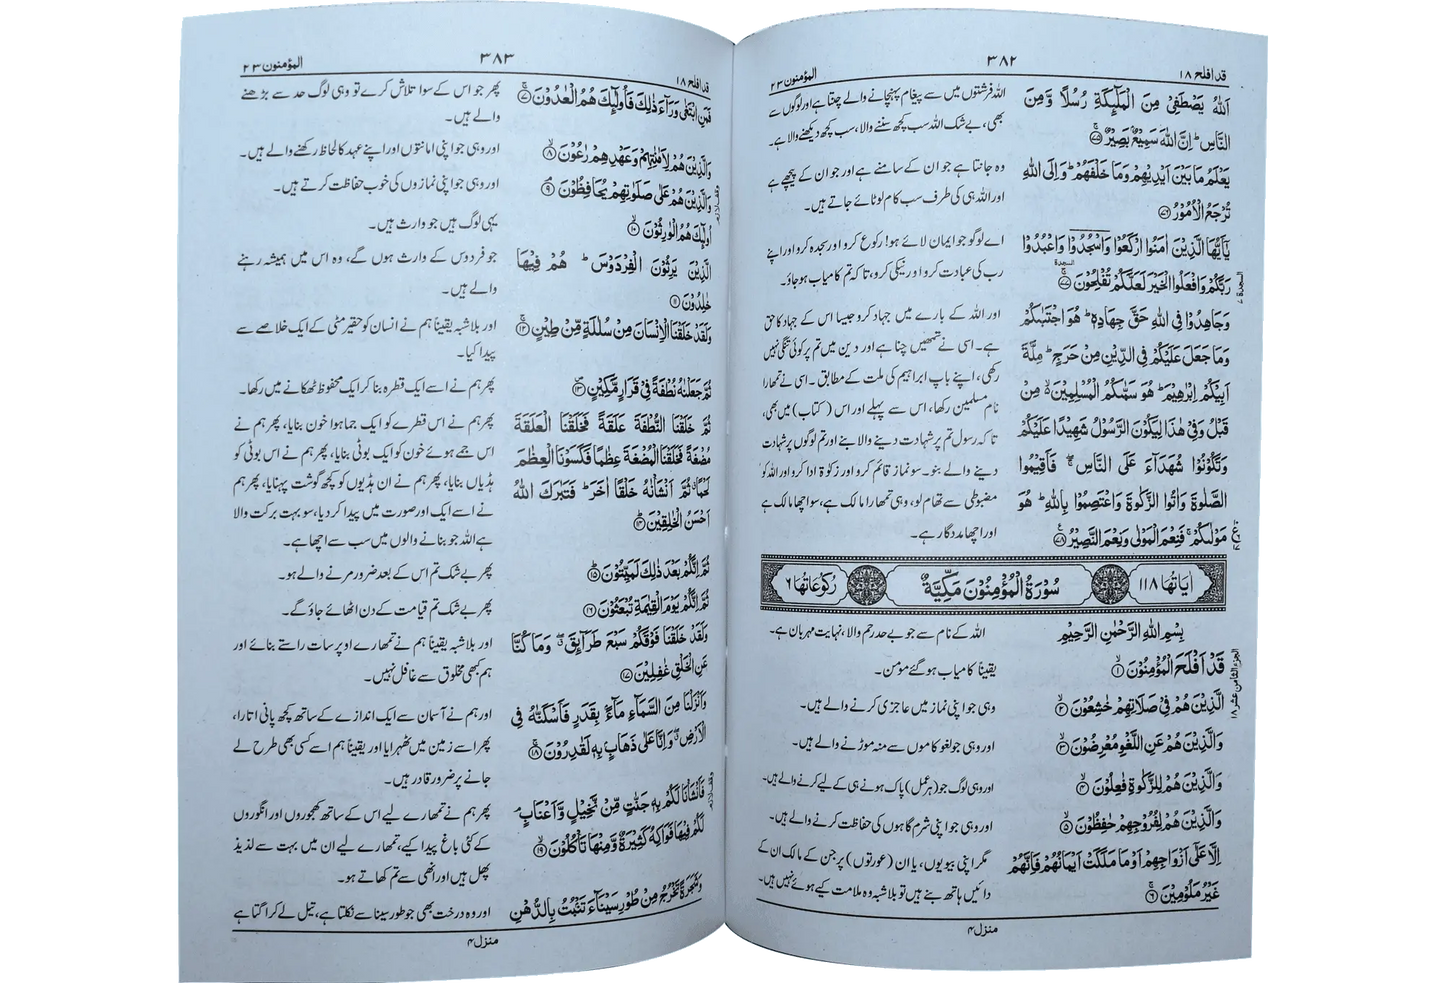 قد افلح ۱۸
۳۸۲
المؤمنون ۲۳
اَللّٰهُ يَصْطَفِىْ مِنَ الْمَلٰٓئِكَةِ رُسُلًا وَّمِنَ
النَّاسِ ؕ اِنَّ اللّٰهَ سَمِيْعٌۢ بَصِيْرٌ ۚ﴿۷۵﴾
يَعْلَمُ مَا بَيْنَ اَيْدِيْهِمْ وَمَا خَلْفَهُمْ ؕ وَاِلَى اللّٰهِ
تُرْجَعُ الْاُمُوْرُ ﴿۷۶﴾
يٰۤاَيُّهَا الَّذِيْنَ اٰمَنُوا ارْكَعُوْا وَاسْجُدُوْا وَاعْبُدُوْا
رَبَّكُمْ وَافْعَلُوا الْخَيْرَ لَعَلَّكُمْ تُفْلِحُوْنَ ۩ۚ﴿۷۷﴾
وَجَاهِدُوْا فِى اللّٰهِ حَقَّ جِهَادِهٖ ؕ هُوَ اجْتَبٰىكُمْ
وَمَا جَعَلَ عَلَيْكُمْ فِى الدِّيْنِ مِنْ حَرَجٍ ؕ مِلَّةَ
اَبِيْكُمْ اِبْرٰهِيْمَ ؕ هُوَ سَمّٰىكُمُ الْمُسْلِمِيْنَ ۙ مِنْ
قَبْلُ وَفِىْ هٰذَا لِيَكُوْنَ الرَّسُوْلُ شَهِيْدًا عَلَيْكُمْ
وَتَكُوْنُوْا شُهَدَآءَ عَلَى النَّاسِ ۖۚ فَاَقِيْمُوا
الصَّلٰوةَ وَاٰتُوا الزَّكٰوةَ وَاعْتَصِمُوْا بِاللّٰهِ ؕ هُوَ
مَوْلٰىكُمْ ۚ فَنِعْمَ الْمَوْلٰى وَنِعْمَ النَّصِيْرُ ﴿۷۸﴾
اللہ فرشتوں میں سے پیغام پہنچانے والے چنتا ہے اور لوگوں سے
بھی، بے شک اللہ سب کچھ سننے والا، سب کچھ دیکھنے والا ہے۔
وہ جانتا ہے جو ان کے سامنے ہے اور جو ان کے پیچھے ہے
اور اللہ ہی کی طرف سب کام لوٹائے جاتے ہیں۔
اے لوگو جو ایمان لائے ہو! رکوع کرو اور سجدہ کرو اور اپنے
رب کی عبادت کرو اور نیکی کرو، تاکہ تم کامیاب ہو جاؤ۔
اور اللہ کے بارے میں جہاد کرو جیسا اس کے جہاد کا حق
ہے۔ اسی نے تمھیں چنا ہے اور دین میں تم پر کوئی تنگی نہیں
رکھی، اپنے باپ ابراہیم کی ملت کے مطابق۔ اسی نے تمھارا
نام مسلمین رکھا، اس سے پہلے اور اس (کتاب) میں بھی،
تاکہ رسول تم پر شہادت دینے والا بنے اور تم لوگوں پر شہادت
دینے والے بنو۔ سو نماز قائم کرو اور زکوٰۃ ادا کرو اور اللہ کو
مضبوطی سے تھام لو، وہی تمھارا مالک ہے، سو اچھا مالک ہے
اور اچھا مددگار ہے۔
السجدة ۷
السجدة
اٰيَاتُهَا ۱۱۸
سُوْرَةُ الْمُؤْمِنُوْنَ مَكِّيَّةٌ
رُكُوْعَاتُهَا ۶
بِسْمِ اللّٰهِ الرَّحْمٰنِ الرَّحِيْمِ
قَدْ اَفْلَحَ الْمُؤْمِنُوْنَ ۙ﴿۱﴾
الَّذِيْنَ هُمْ فِىْ صَلَاتِهِمْ خٰشِعُوْنَ ۙ﴿۲﴾
وَالَّذِيْنَ هُمْ عَنِ اللَّغْوِ مُعْرِضُوْنَ ۙ﴿۳﴾
وَالَّذِيْنَ هُمْ لِلزَّكٰوةِ فٰعِلُوْنَ ۙ﴿۴﴾
وَالَّذِيْنَ هُمْ لِفُرُوْجِهِمْ حٰفِظُوْنَ ۙ﴿۵﴾
اِلَّا عَلٰٓى اَزْوَاجِهِمْ اَوْ مَا مَلَكَتْ اَيْمَانُهُمْ فَاِنَّهُمْ
غَيْرُ مَلُوْمِيْنَ ۚ﴿۶﴾
اللہ کے نام سے جو بے حد رحم والا، نہایت مہربان ہے۔
یقیناً کامیاب ہو گئے مومن۔
وہی جو اپنی نماز میں عاجزی کرنے والے ہیں۔
اور وہی جو لغو کاموں سے منہ موڑنے والے ہیں۔
اور وہی لوگ جو (ہر عمل) پاک ہونے ہی کے لیے کرنے والے ہیں۔
اور وہی جو اپنی شرم گاہوں کی حفاظت کرنے والے ہیں۔
مگر اپنی بیویوں، یا ان (عورتوں) پر جن کے مالک ان کے
دائیں ہاتھ بنے ہیں تو بلاشبہ وہ ملامت کیے ہوئے نہیں ہیں۔
الجزء الثامن عشر ۱۸
منزل ۴
قد افلح ۱۸
۳۸۳
المؤمنون ۲۳
فَمَنِ ابْتَغٰى وَرَآءَ ذٰلِكَ فَاُولٰٓئِكَ هُمُ الْعٰدُوْنَ ۚ﴿۷﴾
وَالَّذِيْنَ هُمْ لِاَمٰنٰتِهِمْ وَعَهْدِهِمْ رٰعُوْنَ ۙ﴿۸﴾
وَالَّذِيْنَ هُمْ عَلٰى صَلَوٰتِهِمْ يُحَافِظُوْنَ ۘ﴿۹﴾
اُولٰٓئِكَ هُمُ الْوٰرِثُوْنَ ۙ﴿۱۰﴾
الَّذِيْنَ يَرِثُوْنَ الْفِرْدَوْسَ ؕ هُمْ فِيْهَا
خٰلِدُوْنَ ﴿۱۱﴾
وَلَقَدْ خَلَقْنَا الْاِنْسَانَ مِنْ سُلٰلَةٍ مِّنْ طِيْنٍ ۚ﴿۱۲﴾
ثُمَّ جَعَلْنٰهُ نُطْفَةً فِىْ قَرَارٍ مَّكِيْنٍ ۪﴿۱۳﴾
ثُمَّ خَلَقْنَا النُّطْفَةَ عَلَقَةً فَخَلَقْنَا الْعَلَقَةَ
مُضْغَةً فَخَلَقْنَا الْمُضْغَةَ عِظٰمًا فَكَسَوْنَا الْعِظٰمَ
لَحْمًا ۗ ثُمَّ اَنْشَاْنٰهُ خَلْقًا اٰخَرَ ؕ فَتَبٰرَكَ اللّٰهُ
اَحْسَنُ الْخٰلِقِيْنَ ؕ﴿۱۴﴾
ثُمَّ اِنَّكُمْ بَعْدَ ذٰلِكَ لَمَيِّتُوْنَ ؕ﴿۱۵﴾
ثُمَّ اِنَّكُمْ يَوْمَ الْقِيٰمَةِ تُبْعَثُوْنَ ﴿۱۶﴾
وَلَقَدْ خَلَقْنَا فَوْقَكُمْ سَبْعَ طَرَآئِقَ ۖ وَمَا كُنَّا
عَنِ الْخَلْقِ غٰفِلِيْنَ ﴿۱۷﴾
وَاَنْزَلْنَا مِنَ السَّمَآءِ مَآءًۢ بِقَدَرٍ فَاَسْكَنّٰهُ فِى
الْاَرْضِ ۖ وَاِنَّا عَلٰى ذَهَابٍۭ بِهٖ لَقٰدِرُوْنَ ۚ﴿۱۸﴾
فَاَنْشَاْنَا لَكُمْ بِهٖ جَنّٰتٍ مِّنْ نَّخِيْلٍ وَّاَعْنَابٍ ۘ
لَكُمْ فِيْهَا فَوَاكِهُ كَثِيْرَةٌ وَّمِنْهَا تَاْكُلُوْنَ ۙ﴿۱۹﴾
وَشَجَرَةً تَخْرُجُ مِنْ طُوْرِ سَيْنَآءَ تَنْۢبُتُ بِالدُّهْنِ
پھر جو اس کے سوا تلاش کرے تو وہی لوگ حد سے بڑھنے
والے ہیں۔
اور وہی جو اپنی امانتوں اور اپنے عہد کا لحاظ رکھنے والے ہیں۔
اور وہی جو اپنی نمازوں کی خوب حفاظت کرتے ہیں۔
یہی لوگ ہیں جو وارث ہیں۔
جو فردوس کے وارث ہوں گے، وہ اس میں ہمیشہ رہنے
والے ہیں۔
اور بلاشبہ یقیناً ہم نے انسان کو حقیر مٹی کے ایک خلاصے سے
پیدا کیا۔
پھر ہم نے اسے ایک قطرہ بنا کر ایک محفوظ ٹھکانے میں رکھا۔
پھر ہم نے اس قطرے کو ایک جما ہوا خون بنایا، پھر ہم نے
اس جمے ہوئے خون کو ایک بوٹی بنایا، پھر ہم نے اس بوٹی کو
ہڈیاں بنایا، پھر ہم نے ان ہڈیوں کو کچھ گوشت پہنایا، پھر ہم
نے اسے ایک اور صورت میں پیدا کر دیا، سو بہت برکت والا
ہے اللہ جو بنانے والوں میں سب سے اچھا ہے۔
پھر بے شک تم اس کے بعد ضرور مرنے والے ہو۔
پھر بے شک تم قیامت کے دن اٹھائے جاؤ گے۔
اور بلاشبہ یقیناً ہم نے تمھارے اوپر سات راستے بنائے اور
ہم کبھی مخلوق سے غافل نہیں۔
اور ہم نے آسمان سے ایک اندازے کے ساتھ کچھ پانی اتارا،
پھر اسے زمین میں ٹھہرایا اور یقیناً ہم اسے کسی بھی طرح لے
جانے پر ضرور قادر ہیں۔
پھر ہم نے تمھارے لیے اس کے ساتھ کھجوروں اور انگوروں
کے کئی باغ پیدا کیے، تمھارے لیے ان میں بہت سے لذیذ
پھل ہیں اور انھی سے تم کھاتے ہو۔
اور وہ درخت بھی جو طور سینا سے نکلتا ہے، تیل لے کر اگتا ہے
منزل ۴